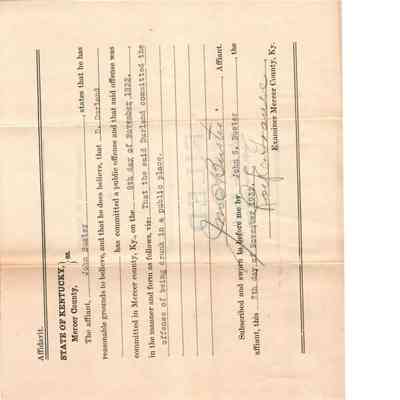 Affidavit.
STATE OF KENTUCKY,
Mercer County. } ss.
The affiant, John Buster, states that he has
reasonable grounds to believe, and that he does believe, that D. Durland
has committed a public offense and that said offense was
committed in Mercer county, Ky., on the 6th day of November 1922.
in the manner and form as follows, viz: That the said Durland committed the
offense of being drunk in a public place.
Affiant.
Subscribed and sworn to before me by John S. Buster, the
affiant, this 7th day of November
Examiner Mercer County, Ky.